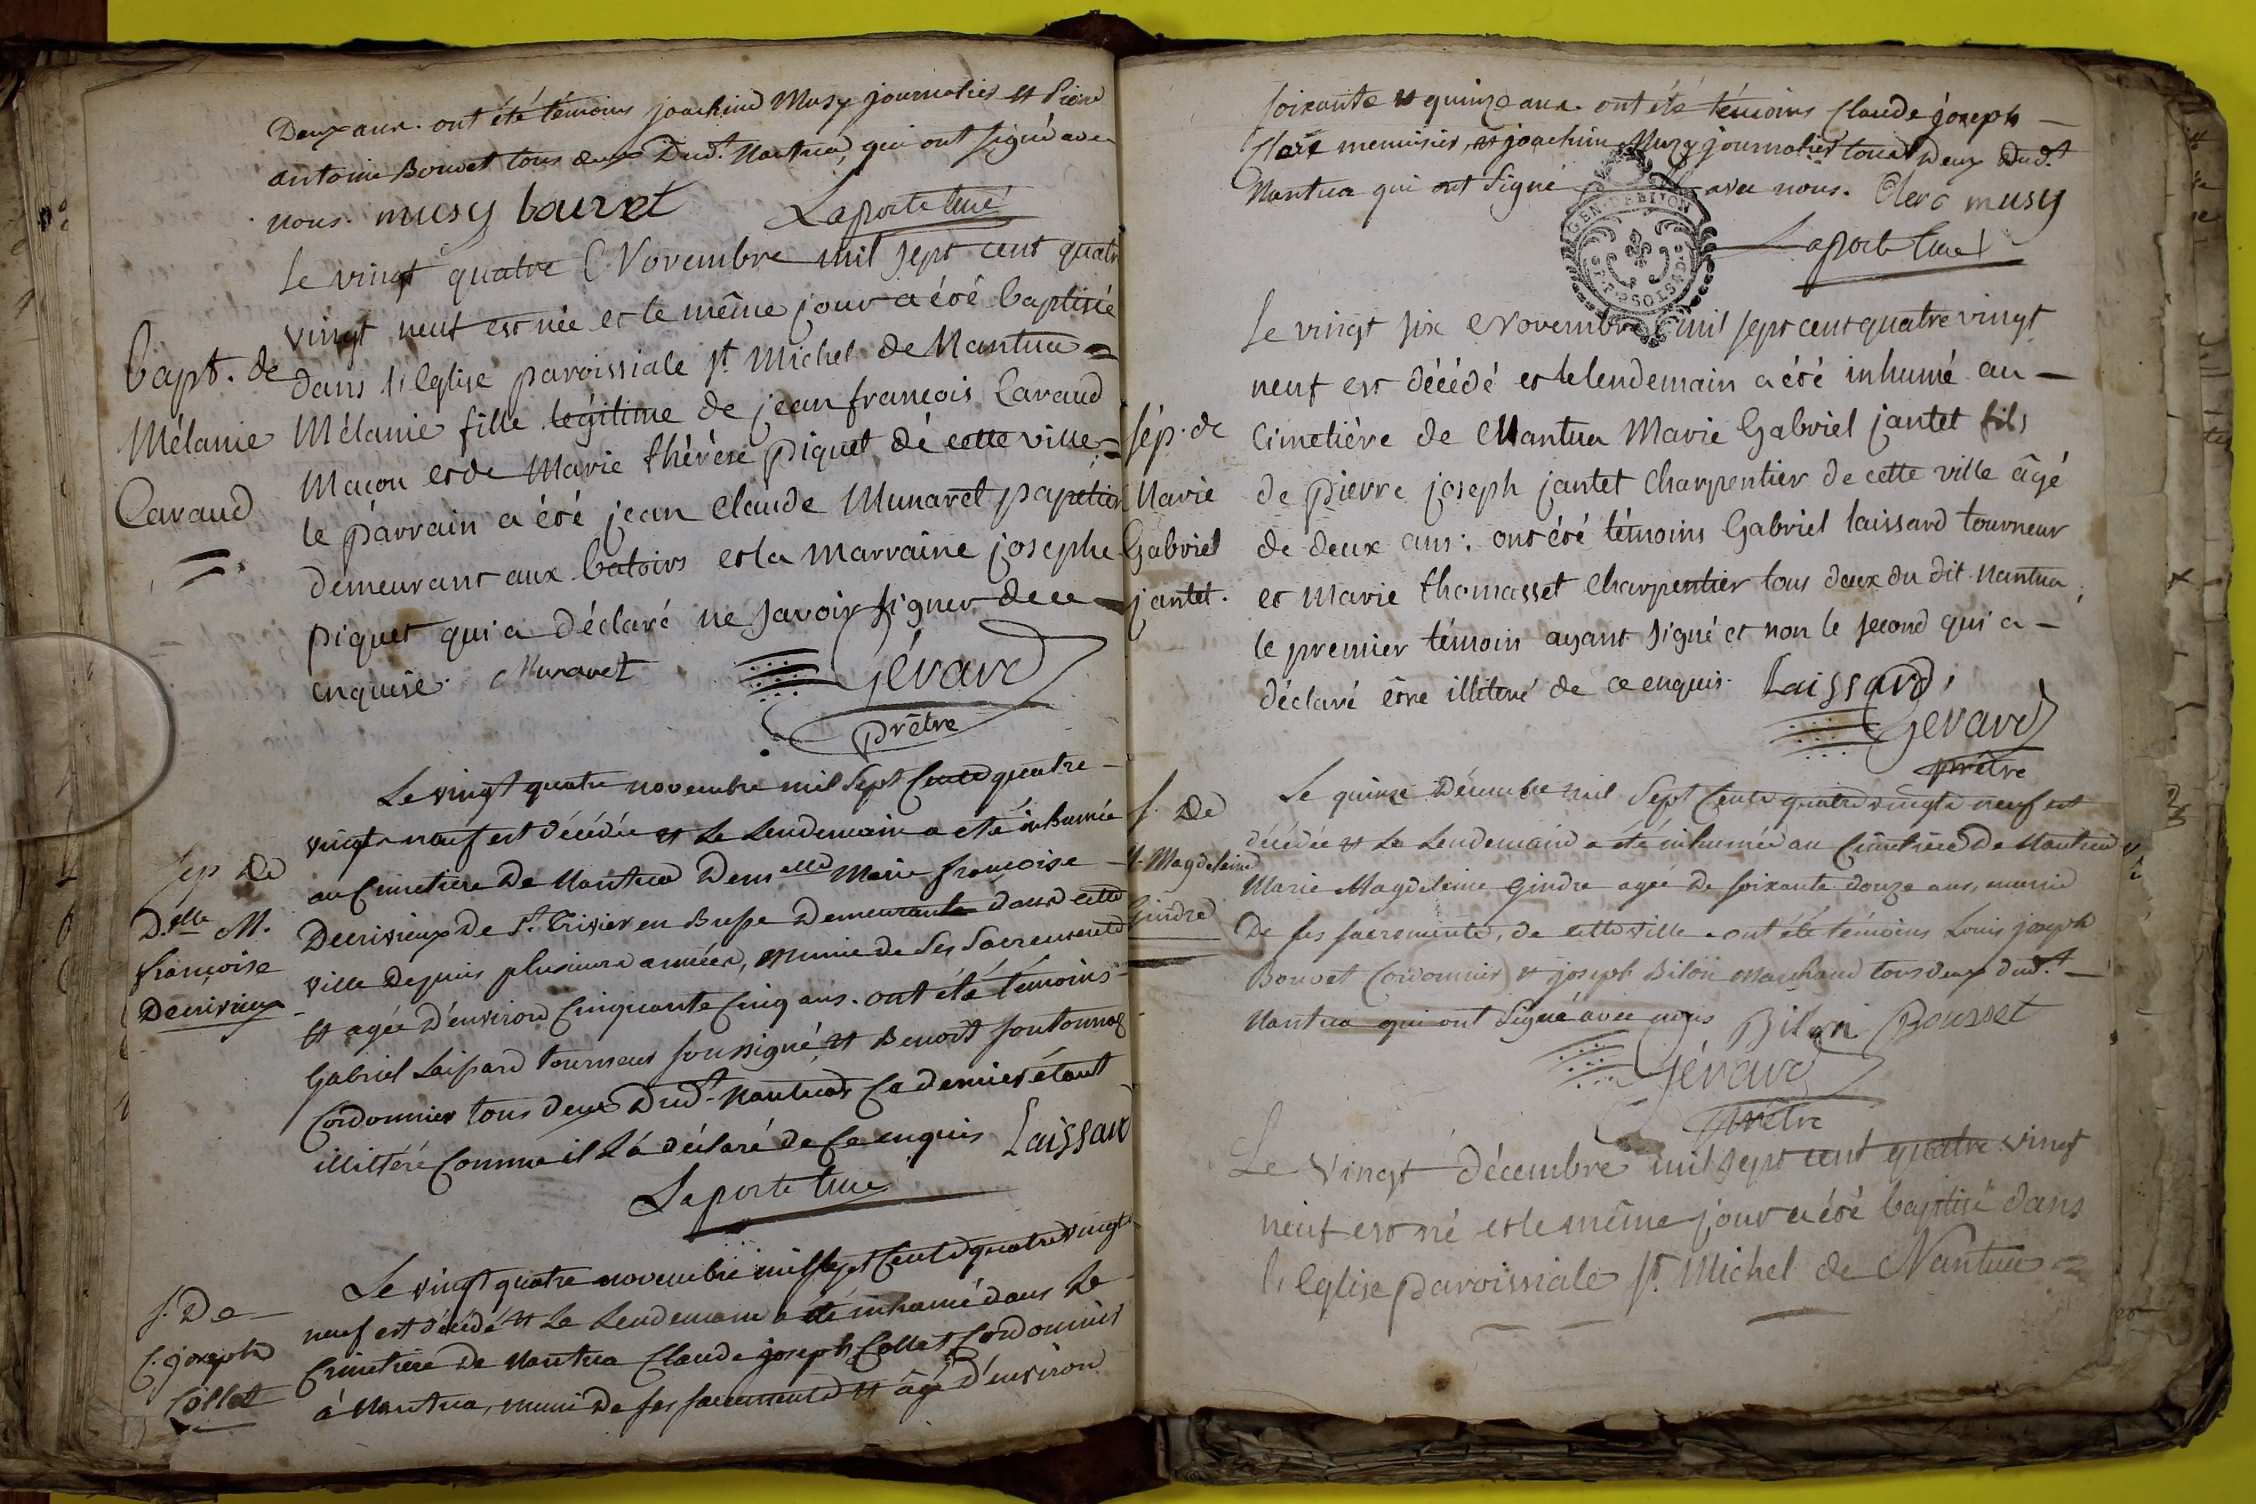 Deux ans. ont été témoins joachim Musy journalier et Pierre
antoine Bouvet tous deux Dud.t Nantua, qui ont signé avec
nous. musy bouvet Laporte curé
Le vingt quatre Novembre mil sept cent quatre
vingt neuf est née et le même jour a été baptisée
dans l'Eglise paroissiale St. Michel de Nantua =
Mélanie fille legitime de jean françois Caraud
Macon et de Marie thérèse piquet de cette ville =
le parrain a été jean claude Munaret papetier
demeurant aux batoirs et la marraine josephe
piquet qui a déclaré ne savoir signer de ce
enquise. Munaret Gérard
prêtre
bapt. de
Mélanie
Caraud
Le vingt quatre novembre mil sept Cent quatre
vingt neuf est décédée et Le Lendemain a été inhumée
au Cimetiere De Nantua Dem.elle Marie françoise
Decrivieux De St. Trivier en Bresse Demeurante dans cette
ville Depuis plusieurs années, munie de ses Sacrements
et agée D'environ Cinquante Cinq ans. ont été témoins
Gabriel Laissard tourneur soussigné et Benoit fontonnas
Cordonnier tous deux Dud.t Nantua Ce dernier étant
illittéré Comme il L'a déclaré de Ce enquis Laissard
Laporte curé
Sep De
D.elle M.
françoise
Decrivieux
Le vingt quatre novembre mil sept Cent quatre vingt
neuf est décédé et Le Lendemain a été inhumé dans Le
Cimetiere De Nantua Claude joseph Collet Cordonnier
à Nantua, muni De ses sacrements et âgé d'environ
S. De
C. joseph
Collet
soixante et quinze ans. ont été témoins Claude joseph
Clerc menuisier et joachim Musy journalier tous Deux Dud.t
Nantua qui ont signé avec nous. Clerc musy
Laporte curé
GEN. DE DIJON
Le vingt six Novembre mil sept cent quatre vingt
neuf est décédé et le lendemain a été inhumé au
Cimetière de Nantua Marie Gabriel jantet fils
de pierre joseph jantet Charpentier de cette ville âgé
de deux ans : ont été témoins Gabriel laissard tourneur
et Marie thomasset Charpentier tous deux du dit Nantua
le premier témoin ayant signé et non le second qui a
déclaré être illiteré de ce enquis. Laissard
Gerard
prêtre
sép. de
Marie
Gabriel
jantet.
Le quinze Décembre mil Sept Cent quatre vingt neuf est
décédée et Le Lendemain a été inhumée au Cimetière De Nantua
Marie Magdeleine Gindre agée De soixante douze ans, munie
De ses sacrements, de cette ville. ont été témoins Louis joseph
Bouvet Cordonnier et joseph Bilon Marchand tous deux dud.t
Nantua qui ont signé avec nous Bilon Bouvet
Gérard
prêtre
S. De
M. Magdeleine
Gindre
Le vingt décembre mil sept cent quatre vingt
neuf est né et le même jour a été baptisé dans
l'Eglise paroissiale St. Michel de Nantua =